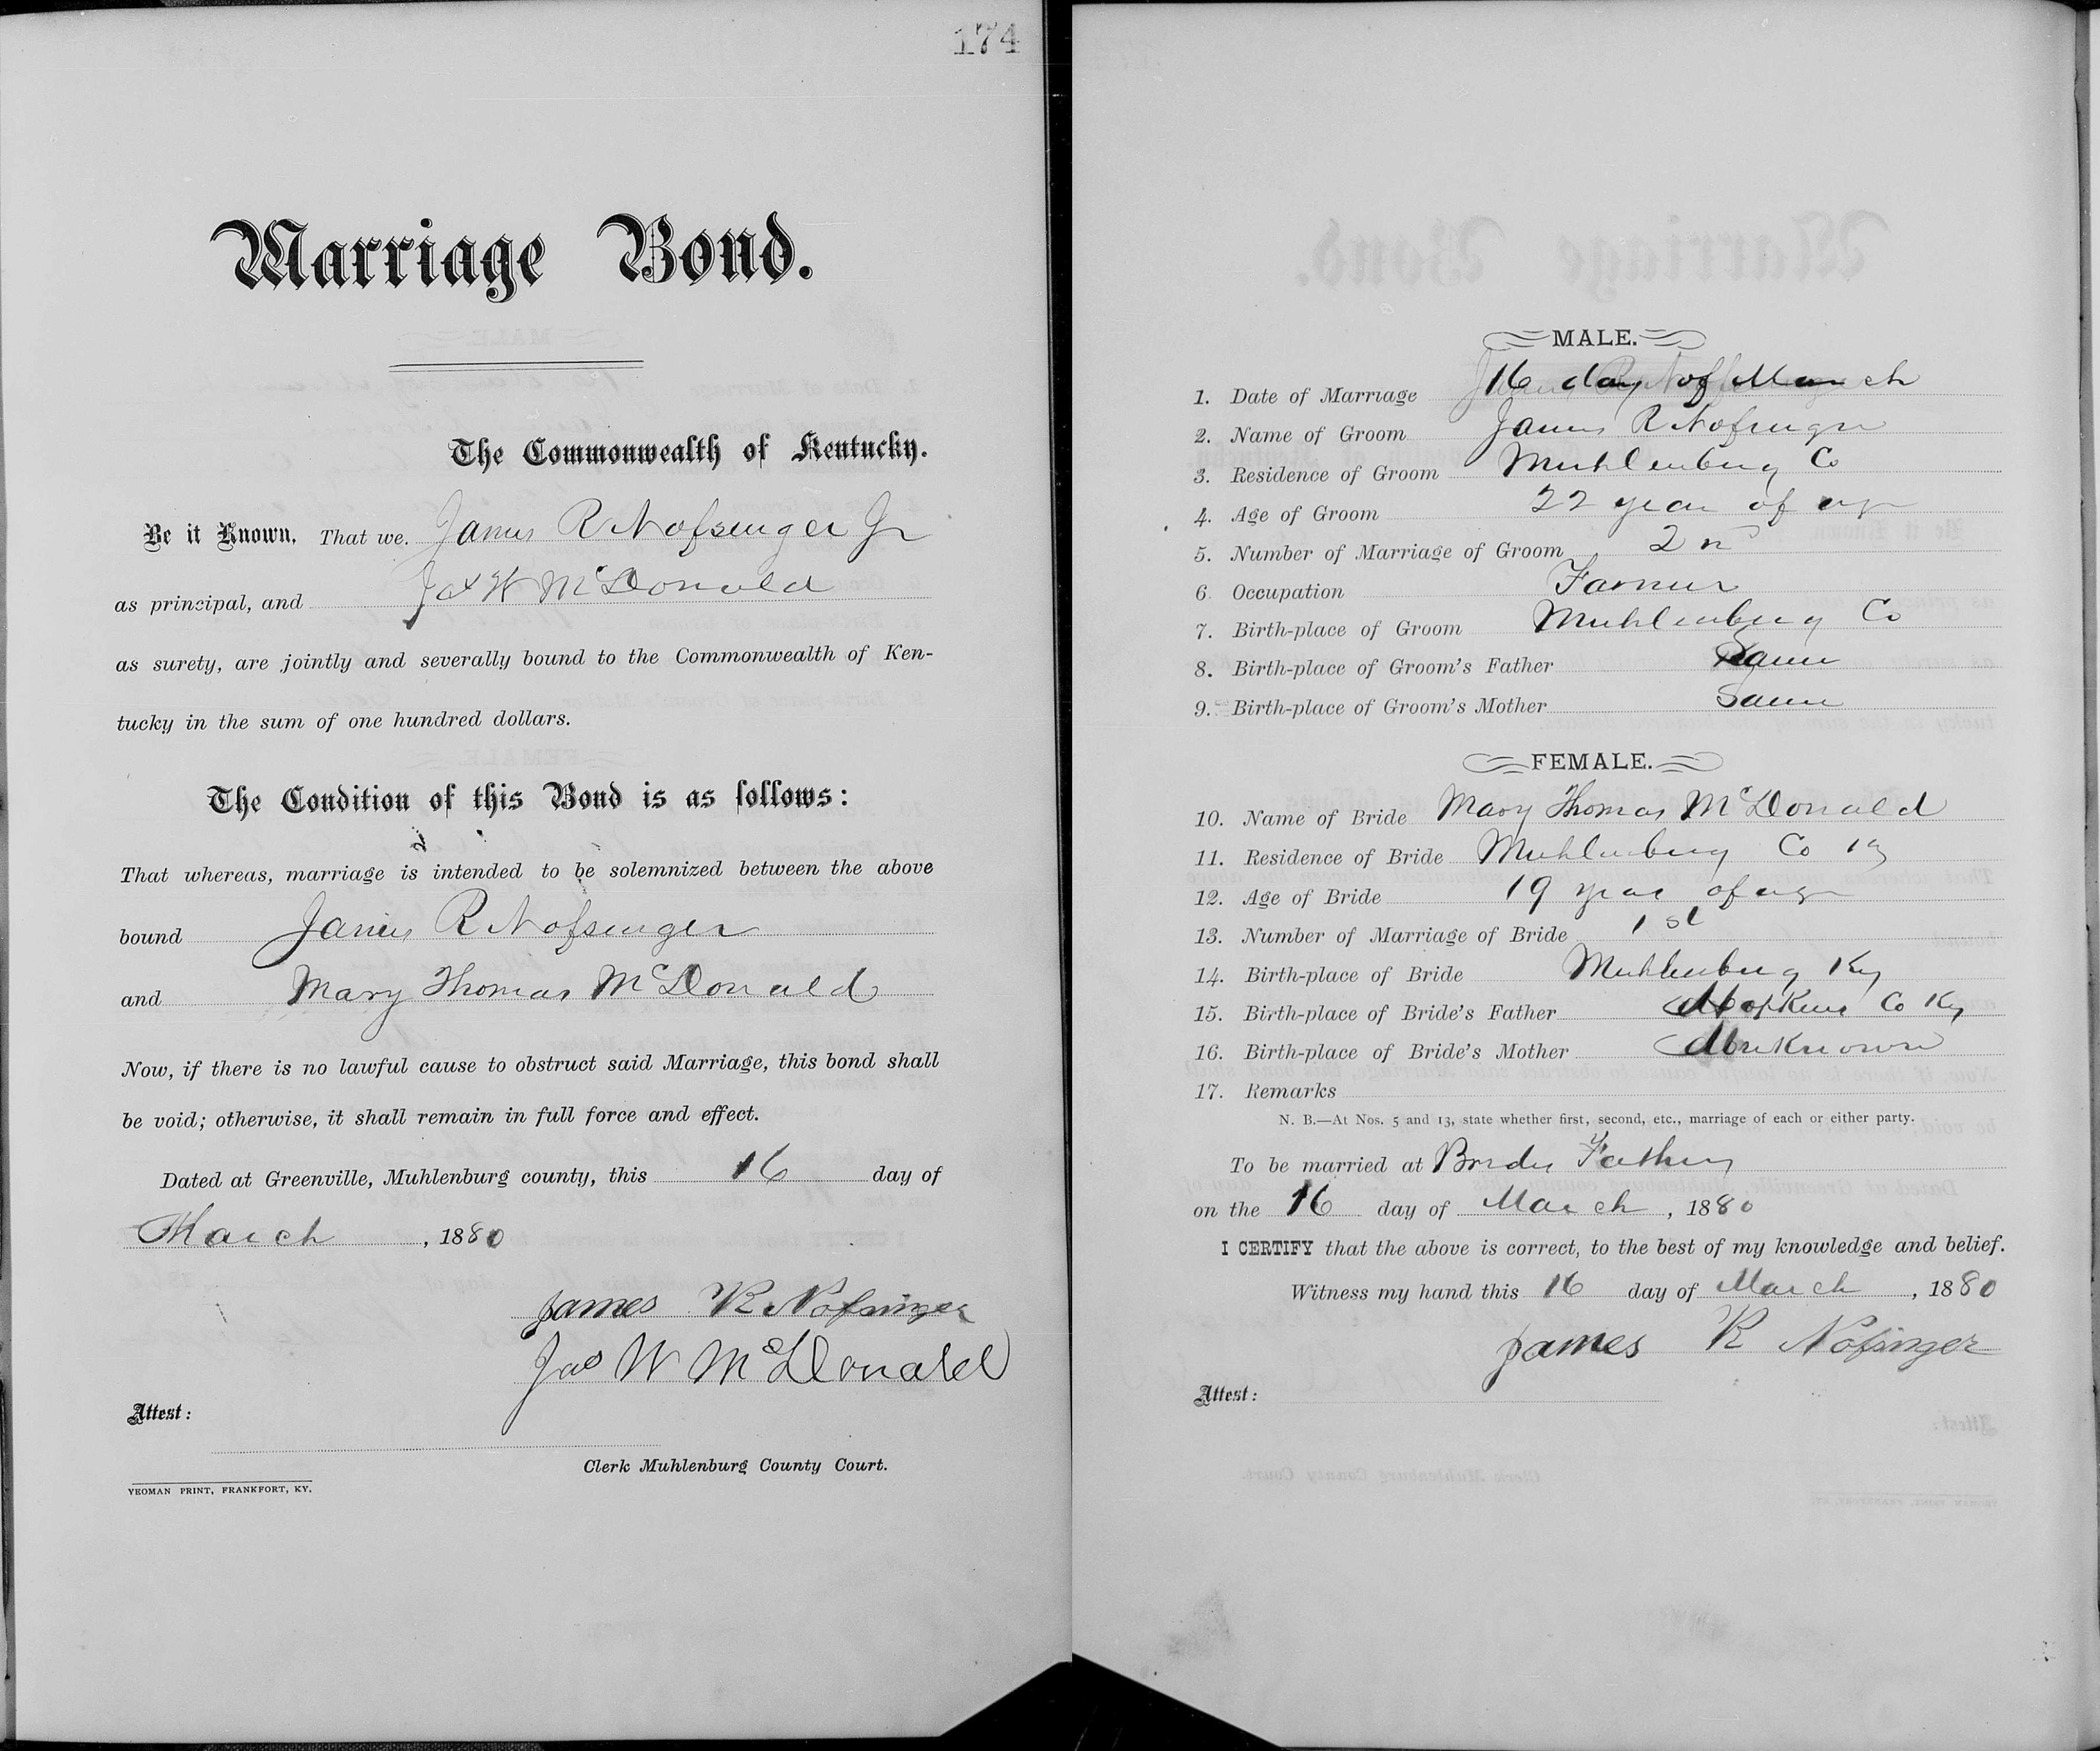 174
Marriage Bond.
The Commonwealth of Kentucky.
Be it Known, That we, James R Nofsinger Jr
as principal, and Jas W McDonald
as surety, are jointly and severally bound to the Commonwealth of Ken-
tucky in the sum of one hundred dollars.
The Condition of this Bond is as follows:
That whereas, marriage is intended to be solemnized between the above
bound James R Nofsinger
and Mary Thomas McDonald
Now, if there is no lawful cause to obstruct said Marriage, this bond shall
be void; otherwise, it shall remain in full force and effect.
Dated at Greenville, Muhlenburg county, this 16 day of
March, 1880
James R Nofsinger
Jas W McDonald
Attest:
Clerk Muhlenburg County Court.
YEOMAN PRINT, FRANKFORT, KY.
MALE.
1. Date of Marriage 16 day of March
2. Name of Groom James R Nofsinger
3. Residence of Groom Muhlenburg Co
4. Age of Groom 22 year of age
5. Number of Marriage of Groom 2n
6. Occupation Farmer
7. Birth-place of Groom Muhlenburg Co
8. Birth-place of Groom's Father Same
9. Birth-place of Groom's Mother Same
FEMALE.
10. Name of Bride Mary Thomas McDonald
11. Residence of Bride Muhlenburg Co Ky
12. Age of Bride 19 year of age
13. Number of Marriage of Bride 1st
14. Birth-place of Bride Muhlenburg Ky
15. Birth-place of Bride's Father Hopkins Co Ky
16. Birth-place of Bride's Mother Unknown
17. Remarks
N. B.—At Nos. 5 and 13, state whether first, second, etc., marriage of each or either party.
To be married at Brides Fathers
on the 16 day of March, 1880
I CERTIFY that the above is correct, to the best of my knowledge and belief.
Witness my hand this 16 day of March, 1880
James R Nofsinger
Attest: